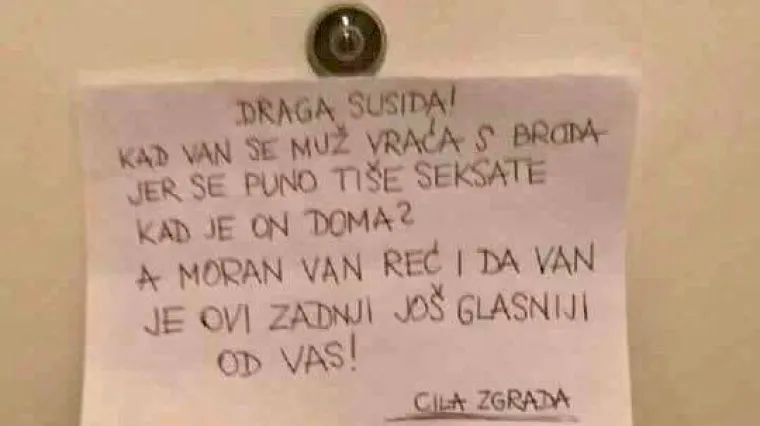 DRAGA SUSIDA!
KAD VAN SE MUŽ VRAĆA S BRODA
JER SE PUNO TIŠE SEKSATE
KAD JE ON DOMA?
A MORAN VAN REĆ I DA VAN
JE OVI ZADNJI JOŠ GLASNIJI
OD VAS!
CILA ZGRADA